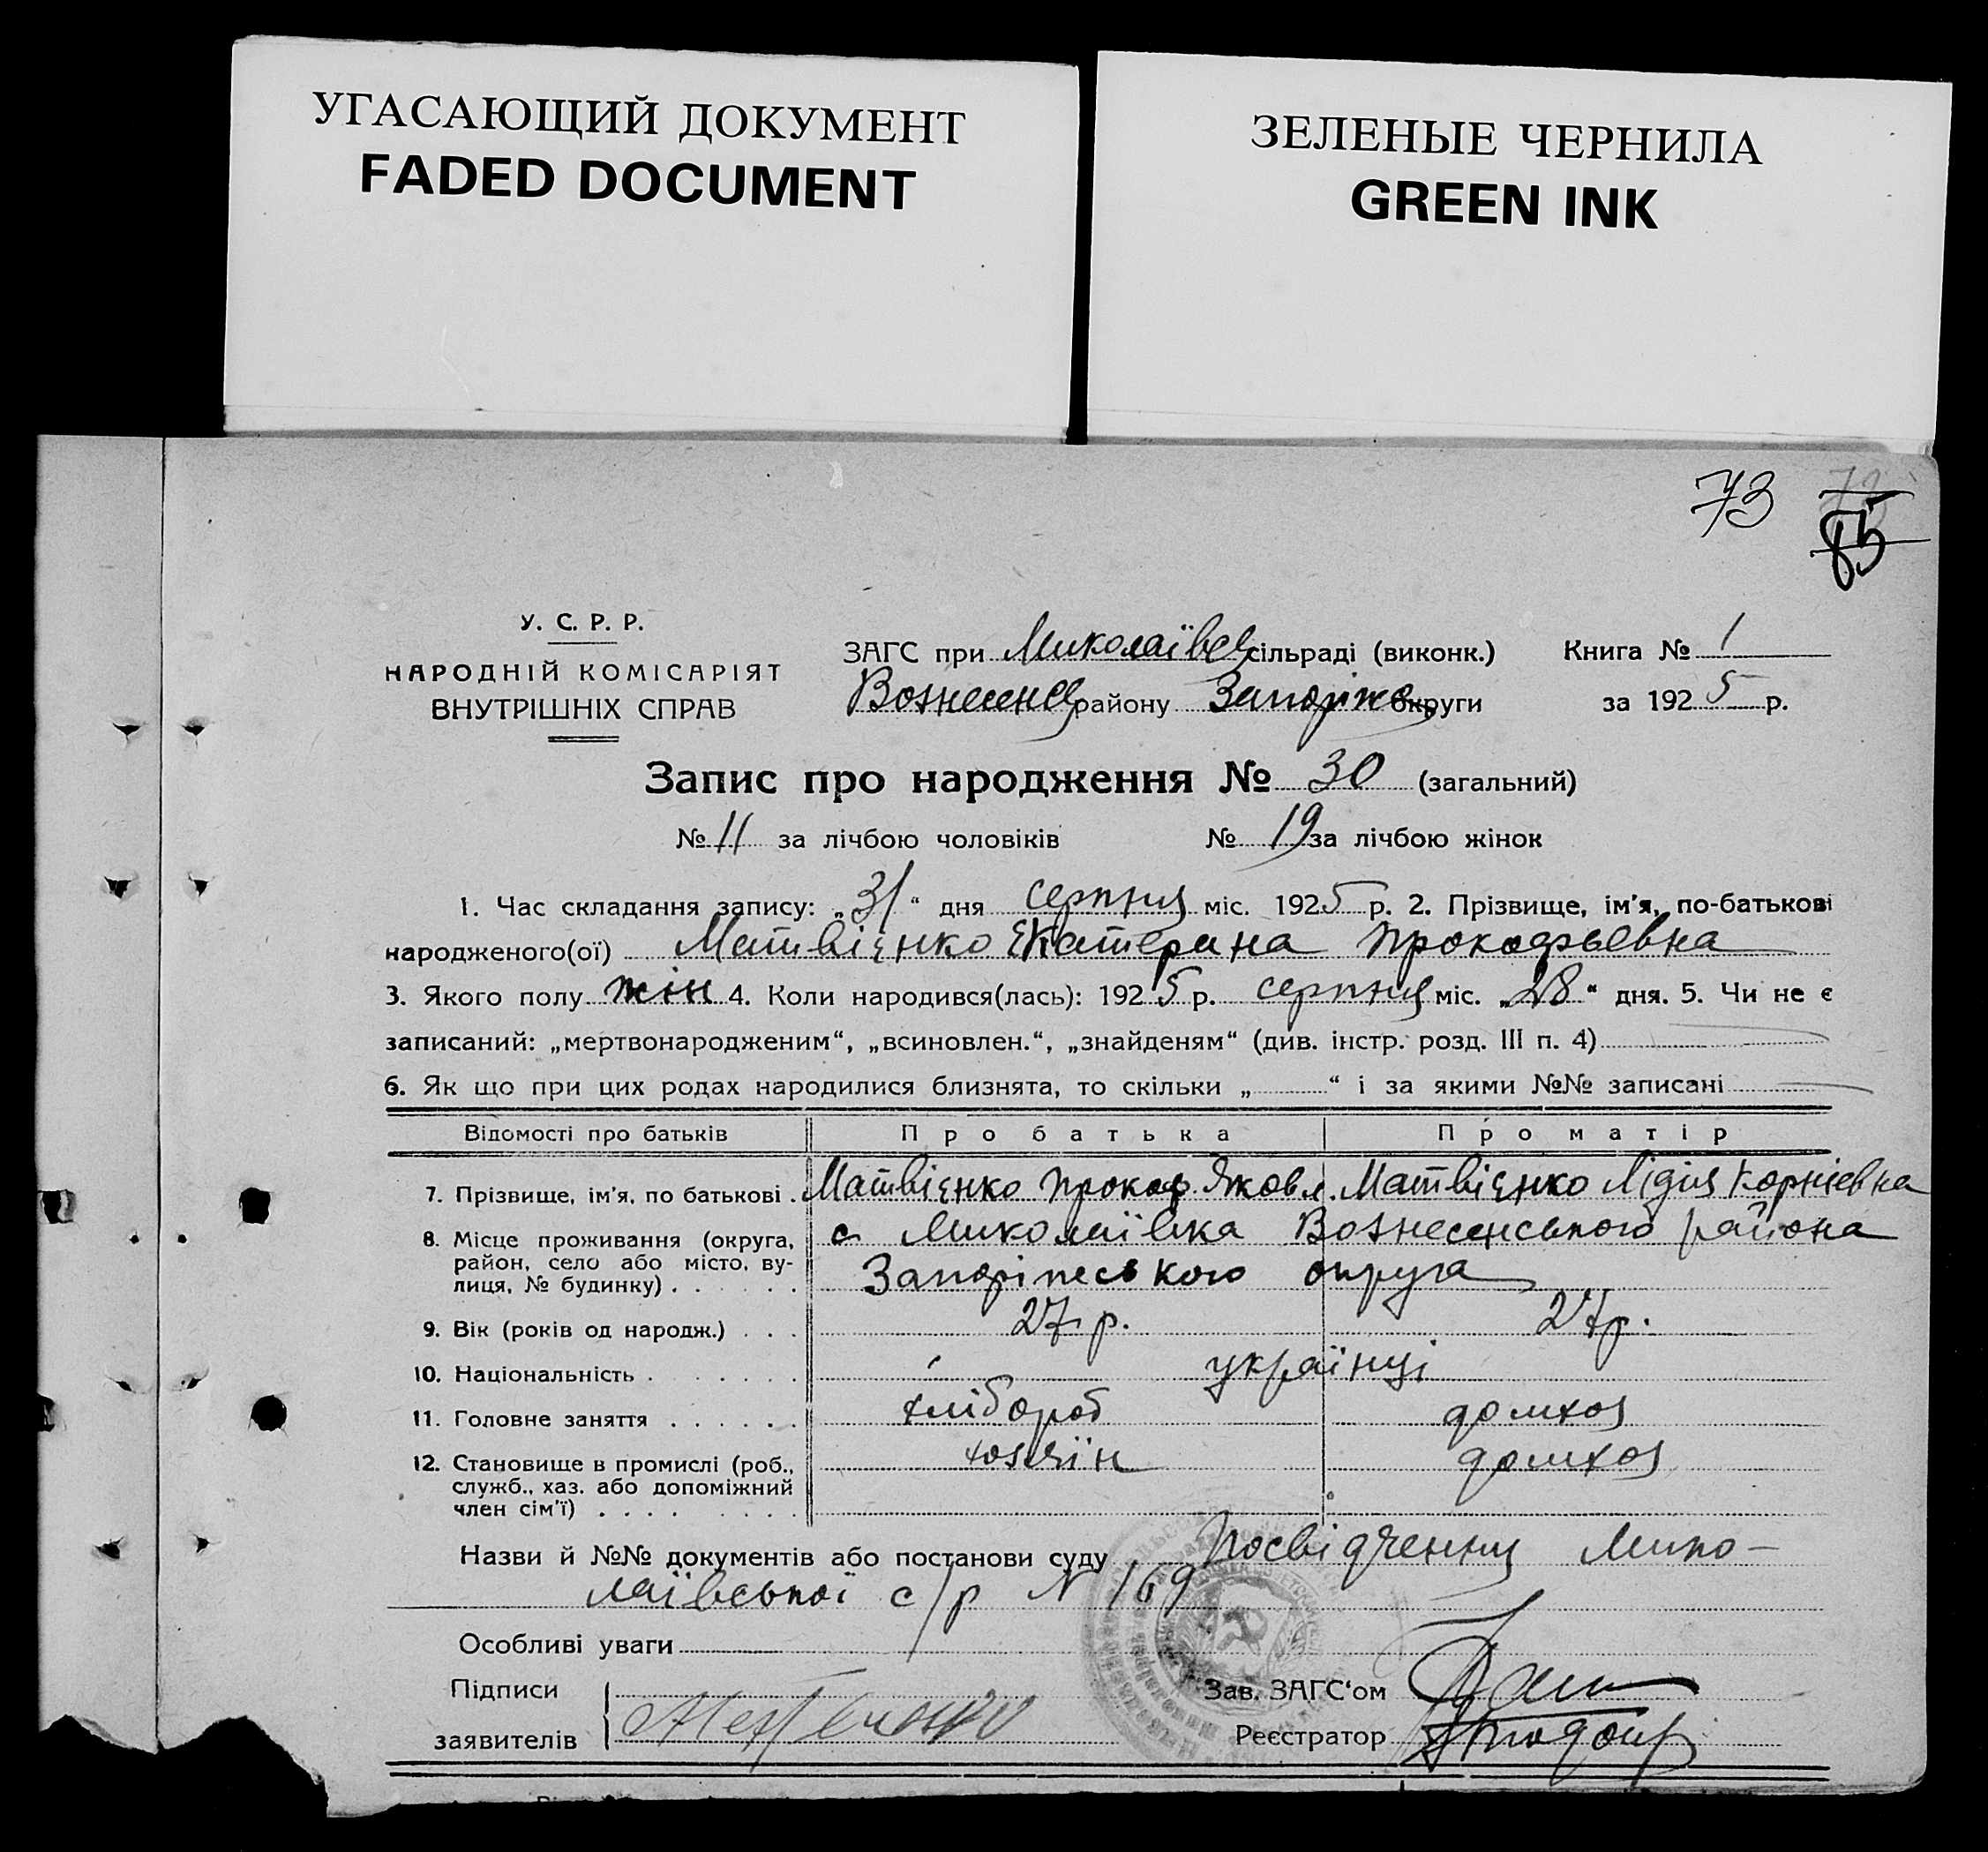 УГАСАЮЩИЙ ДОКУМЕНТ
FADED DOCUMENT
ЗЕЛЕНЫЕ ЧЕРНИЛА
GREEN INK
73 73
85
У. С. Р. Р.
НАРОДНІЙ КОМІСАРІЯТ
ВНУТРІШНІХ СПРАВ
ЗАГС при Миколаївсь сільраді (виконк.) Книга № 1
Вознесенсь району Запоріжс округи за 1925 р.
Запис про народження № 30 (загальний)
№ 11 за лічбою чоловіків № 19 за лічбою жінок
1. Час складання запису: „31“ дня серпня міс. 1925 р. 2. Прізвище, ім'я, по-батькові
народженого(ої) Матвієнко Екатерина Прокофьевна
3. Якого полу жін 4. Коли народився(лась): 1925 р. серпня міс. „28“ дня. 5. Чи не є
записаний: „мертвонародженим“, „всиновлен.“, „знайденям“ (див. інстр. розд. III п. 4)
6. Як що при цих родах народилися близнята, то скільки „ “ і за якими №№ записані
Відомості про батьків Про батька Про матір
7. Прізвище, ім'я, по батькові . Матвієнко Прокоф Яковл. Матвієнко Лідія Корнієвна
8. Місце проживання (округа, с Миколаївка Вознесенського района
район, село або місто, ву-
лиця, № будинку) . . . . . . Запоріжського округа
9. Вік (років од народж.) . . . 27 р. 27 р.
10. Національність . . . . . . . українці
11. Головне заняття . . . . . . хлібороб домхоз
12. Становище в промислі (роб., хозяїн домхоз
служб., хаз. або допоміжний
член сім'ї) . . . . . . . .
Назви й №№ документів або постанови суду Посвідчення Мико-
лаївської с/р N 169
Особливі уваги
Підписи
заявителів
Зав. ЗАГС'ом
Реєстратор